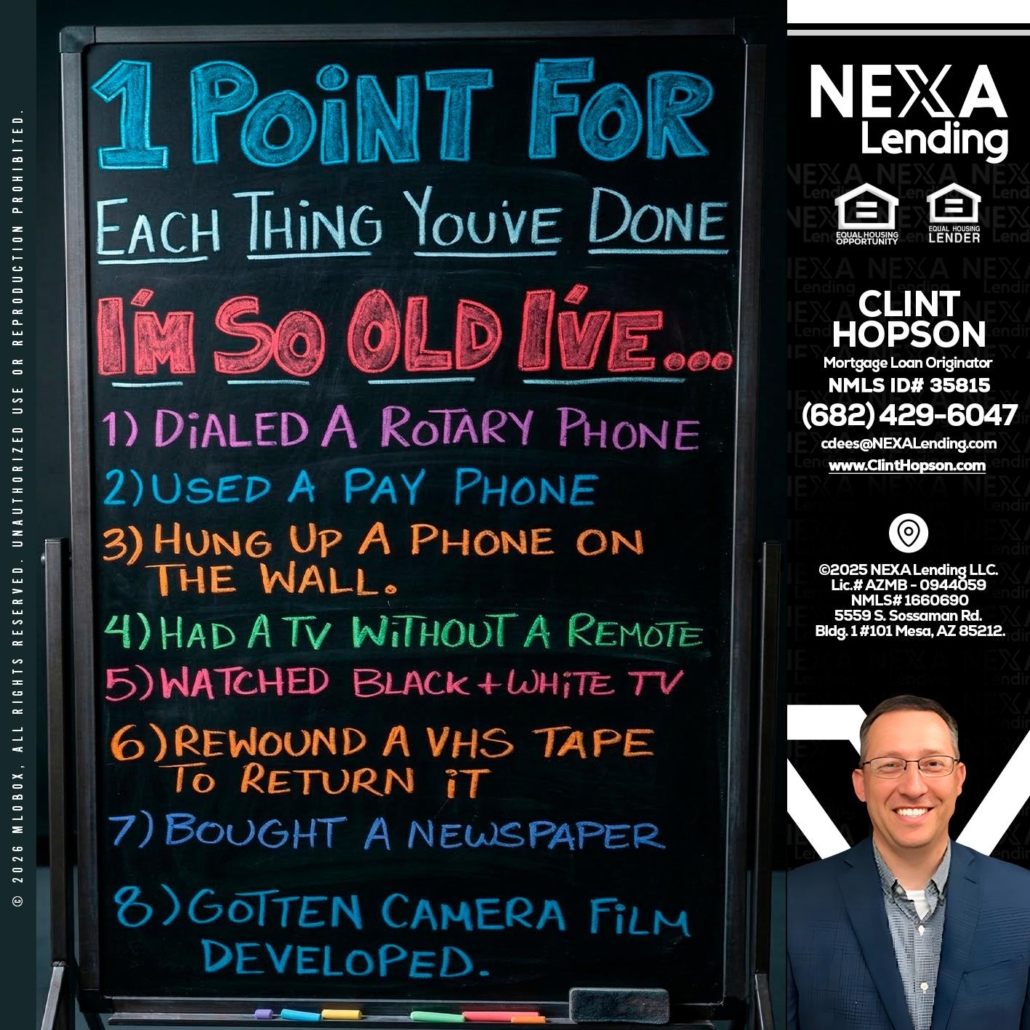 1 POINT FOR
EACH THING YOU'VE DONE
I'M SO OLD I'VE...
1) DIALED A ROTARY PHONE
2) USED A PAY PHONE
3) HUNG UP A PHONE ON
THE WALL.
4) HAD A TV WITHOUT A REMOTE
5) WATCHED BLACK + WHITE TV
6) REWOUND A VHS TAPE
TO RETURN IT
7) BOUGHT A NEWSPAPER
8) GOTTEN CAMERA FILM
DEVELOPED.
© 2026 MLOBOX, ALL RIGHTS RESERVED. UNAUTHORIZED USE OR REPRODUCTION PROHIBITED.
NEXA
Lending
EQUAL HOUSING
OPPORTUNITY
EQUAL HOUSING
LENDER
CLINT
HOPSON
Mortgage Loan Originator
NMLS ID# 35815
(682) 429-6047
cdees@NEXALending.com
www.ClintHopson.com
©2025 NEXA Lending LLC.
Lic.# AZMB - 0944059
NMLS# 1660690
5559 S. Sossaman Rd.
Bldg. 1 #101 Mesa, AZ 85212.